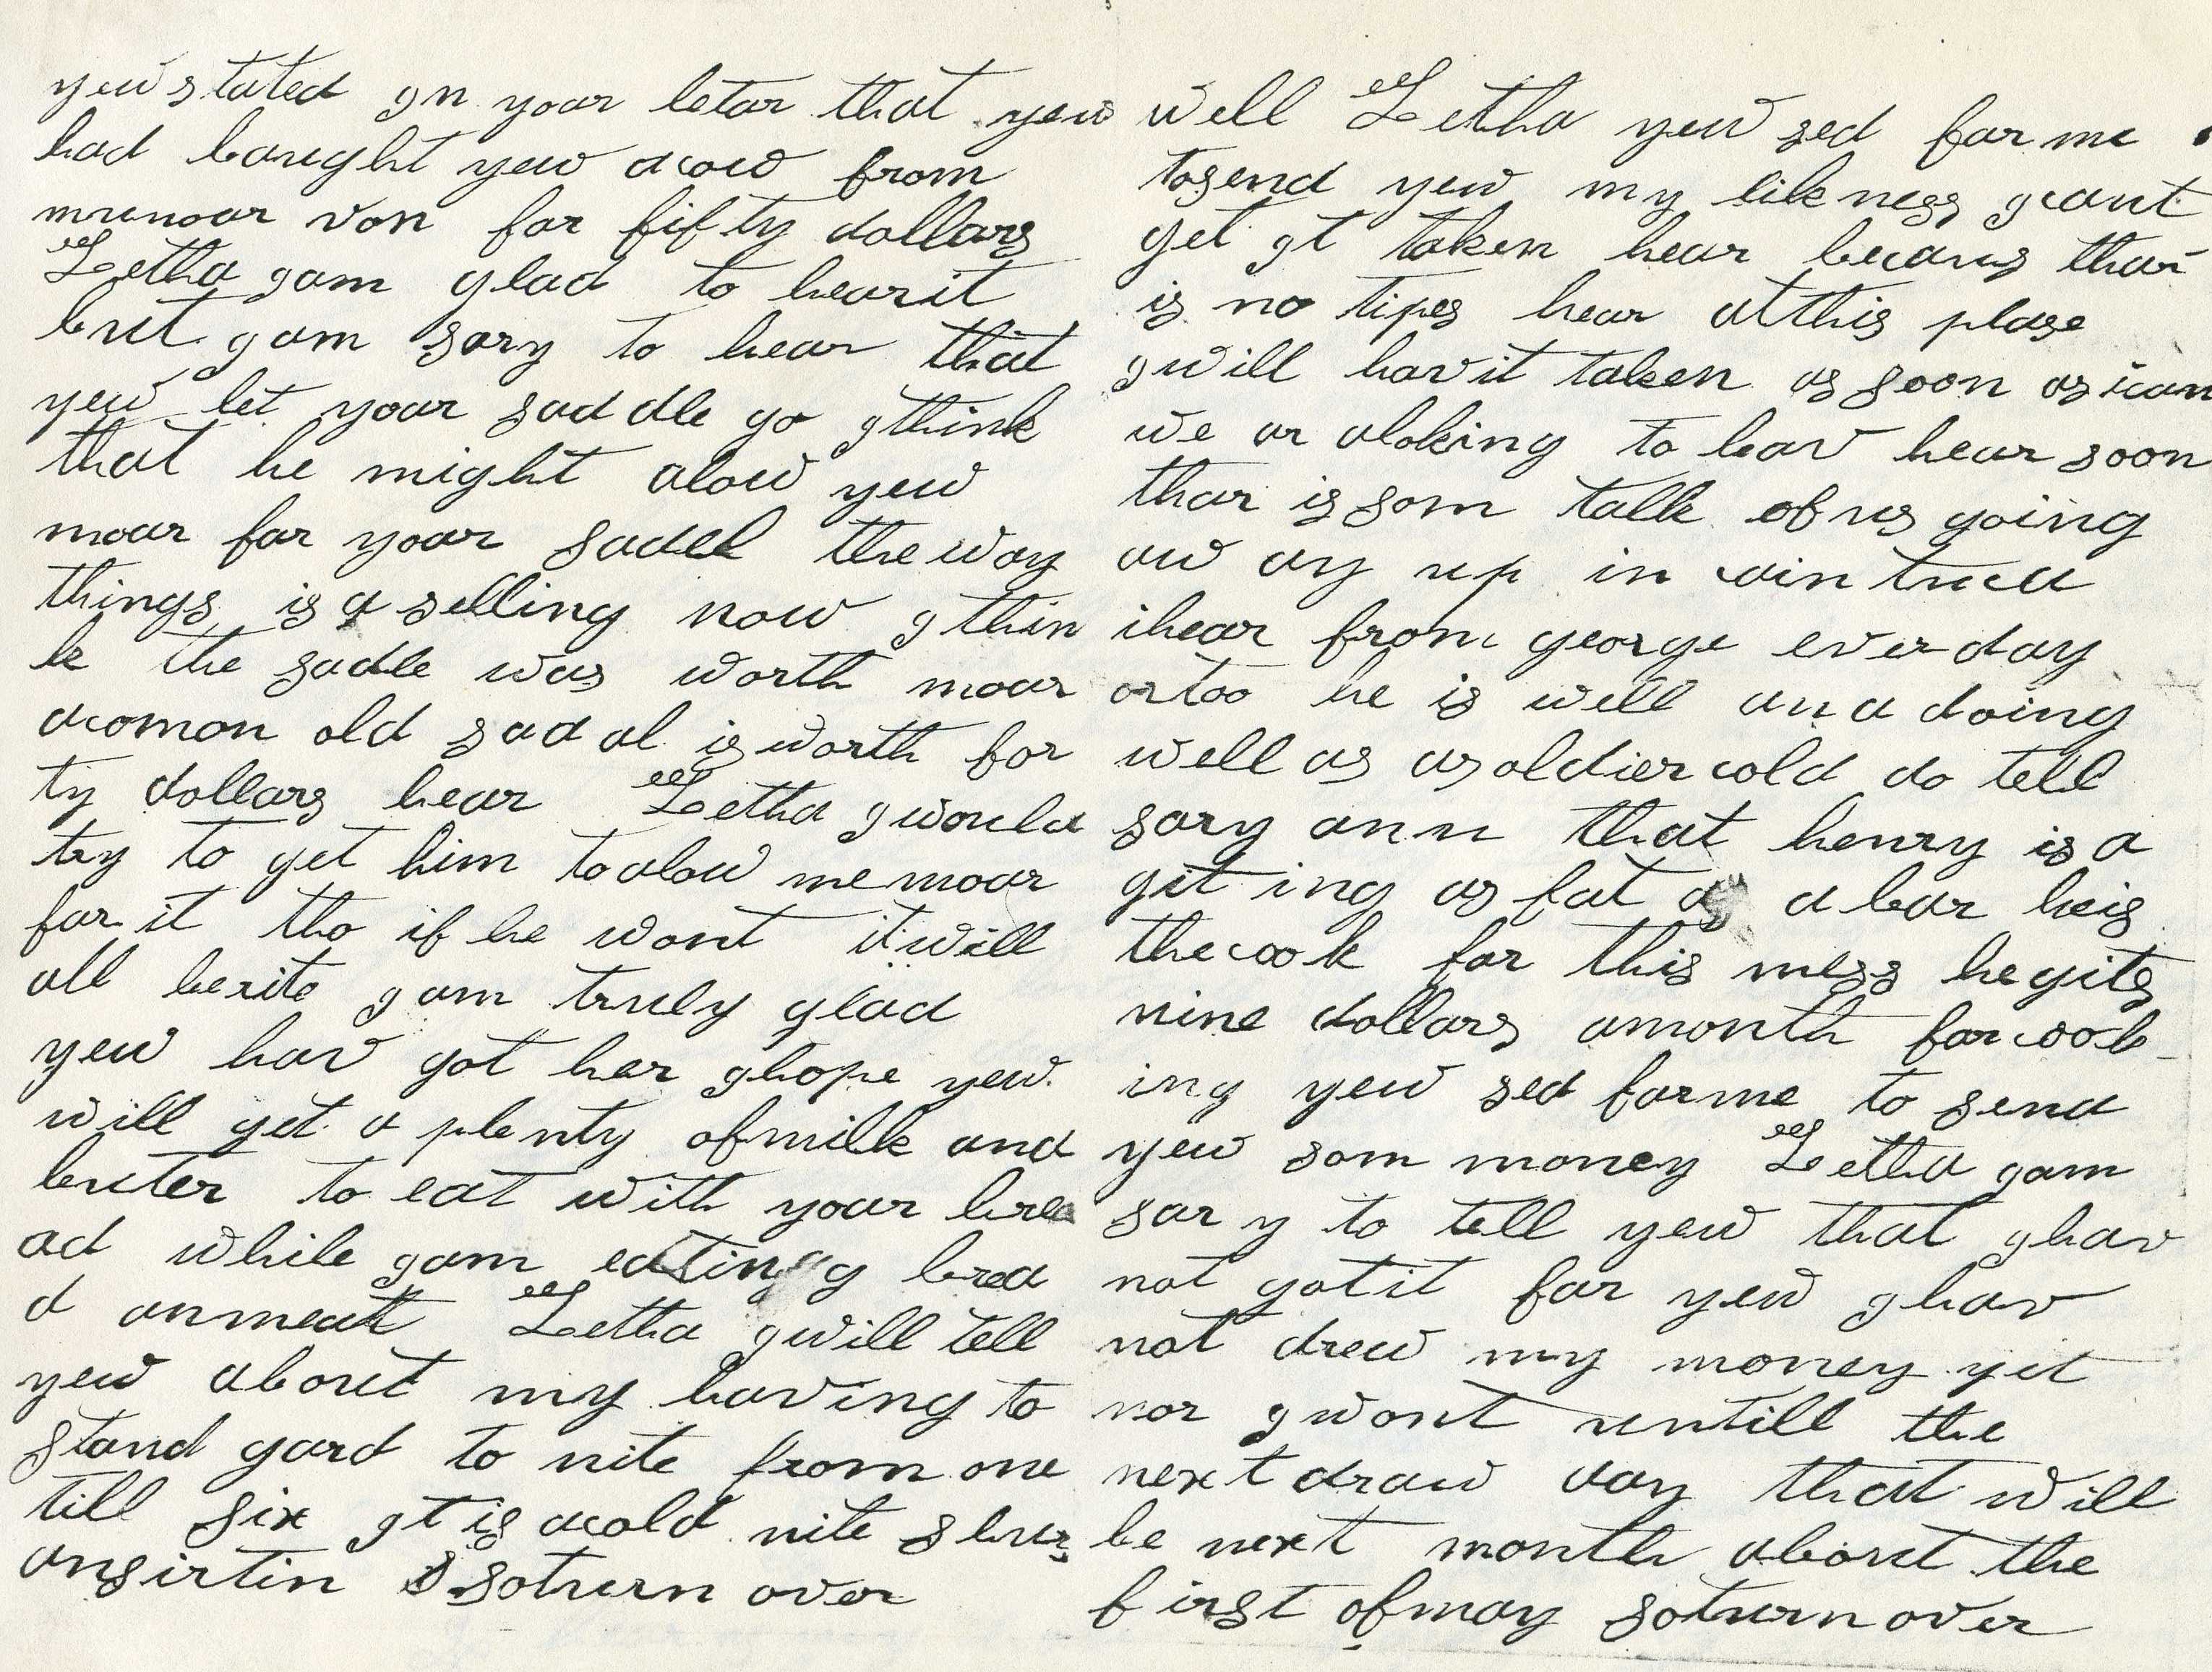 yew stated gn your letar that yew
had baught yew acow from
mrmoar von for fifty dollars
Letha gam glad to hearit
but gam sory to hear that
yew let your saddle go gthink
that he might alow yew
moar for your sadel the way
things is a selling now gthin
k the sadle was worth moar
acomon old sadal is worth for
ty dollars hear Letha gwould
try to get him toalow me moar
for it tho if he wont it will
all berite gam truly glad
yew hav got her ghope yew
will get a plenty ofmilk and
buter to eat with your brea
ad while gam eating brea
d anmeat Letha gwill tell
yew about my having to
stand gard to nite from one
till six gt is acold nite shur
ansirtin soturn over
well Letha yew sed for me
tosend yew my likness gcant
get gt taken hear becaus thar
is no tipes hear atthis plase
gwill havit taken as soon as ican
we ar aloking to leav hear soon
thar is som talk of us going
aw ay up in vointuca
ihear from george ever day
ortoo he is well an a doing
well as asoldier cold do tell
sary ann that henry is a
git ing as fat as a bar heis
thecook for this mess hegits
nine dollars amonth forcook-
ing yew sed forme to send
yew som money Letha gam
sary to tell yew that ghav
not gotit for yew ghav
not drew my money yet
nor gwont untill the
next draw day that will
be next month about the
first ofmay soturn over